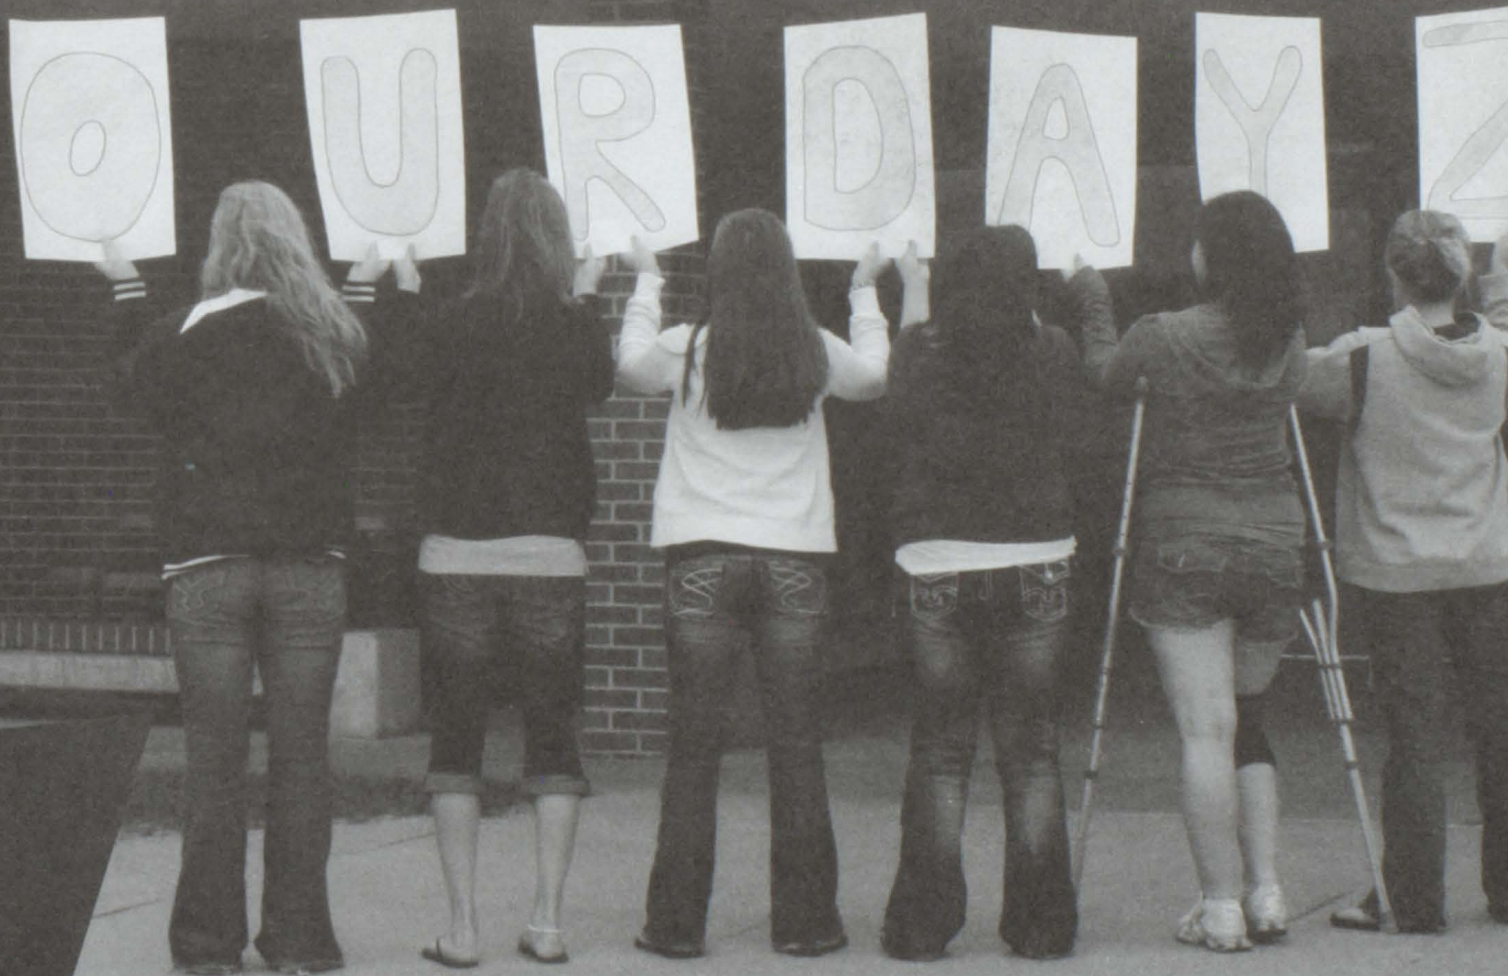 OUR DAYZ